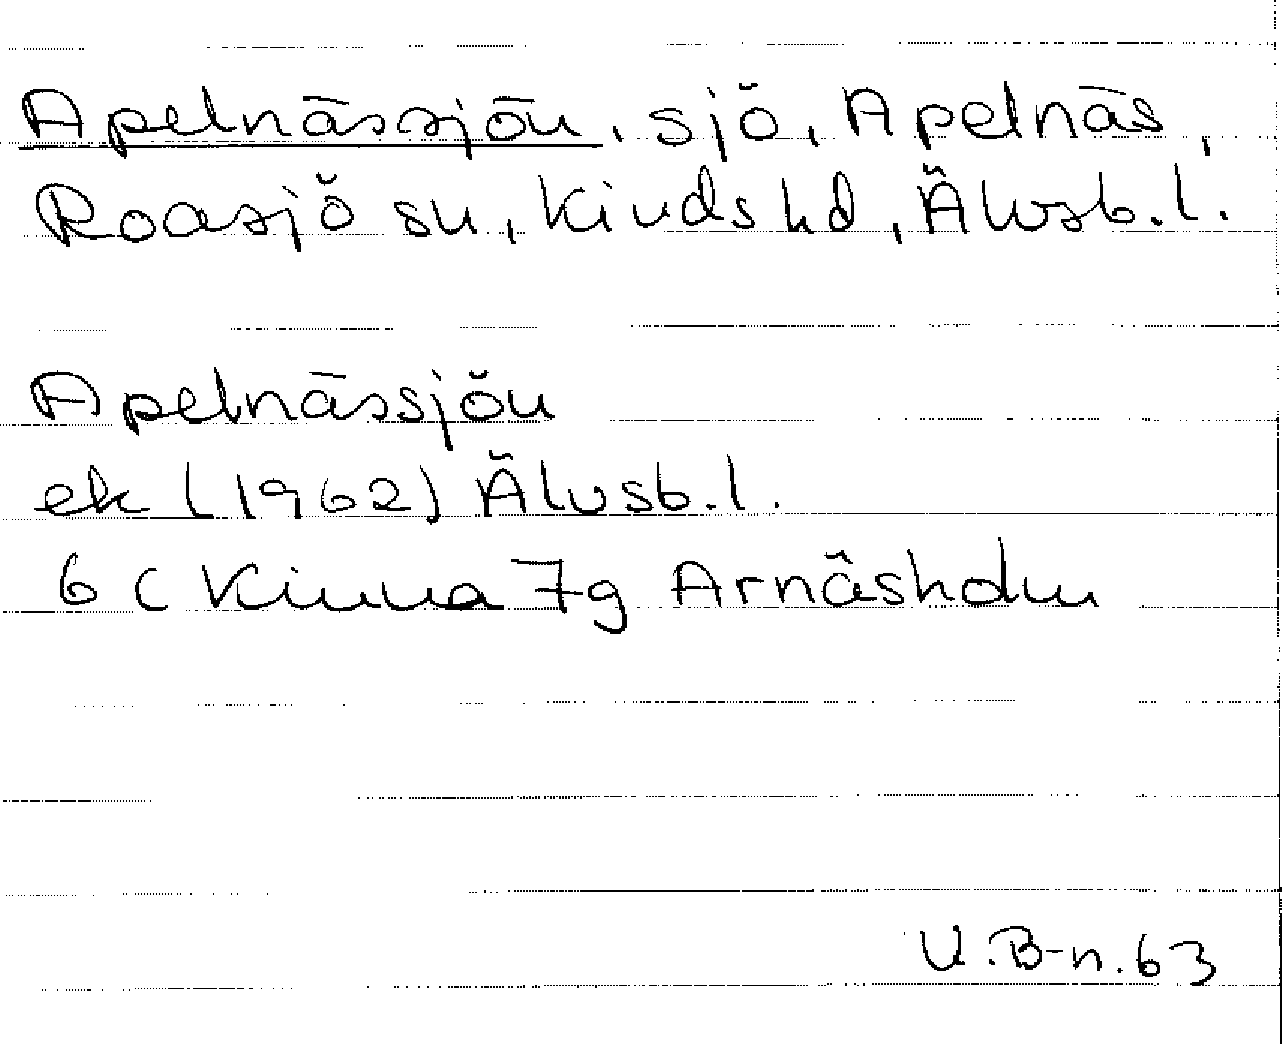 Apelnässjön, sjö, Apelnäs,
Roasjö sn, Kinds hd, Älvsb. l.
Apelnässjön
ek (1962) Älvsb. l.
6 C Kinna 7g Arnäsholm
U. B-n. 63